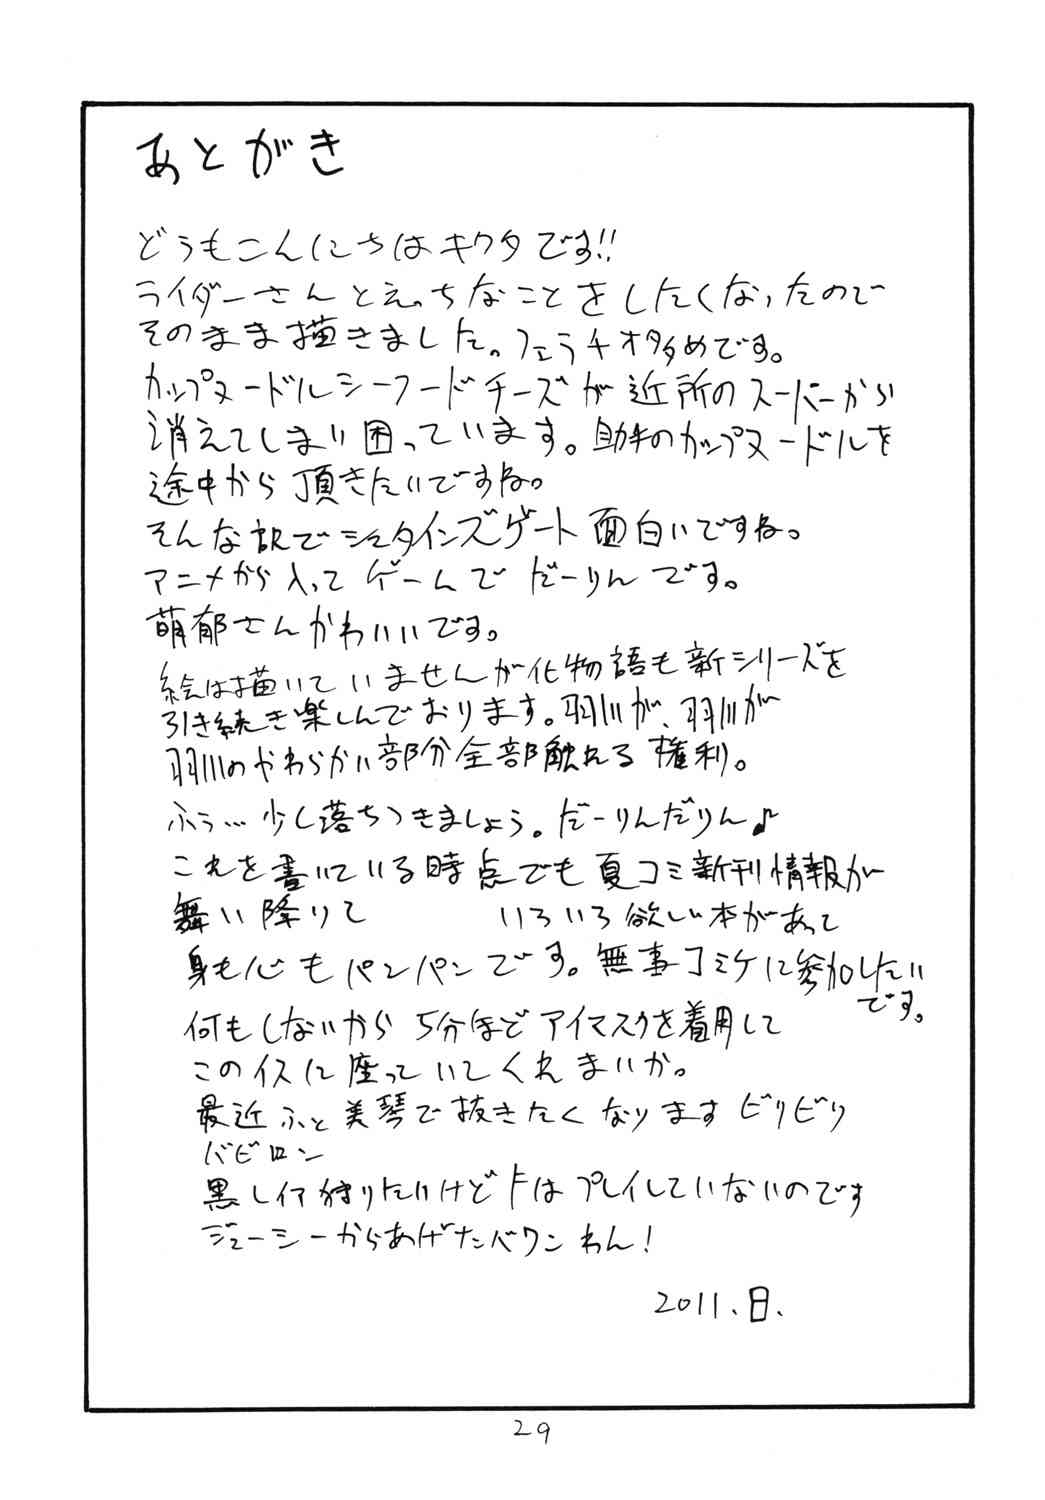 あとがき
どうもこんにちはキクタです!!
ライダーさんとえっちなことをしたくなったので
そのまま描きました。フェラチオ多めです。
カップヌードルシーフードチーズが近所のスーパーから
消えてしまい困っています。助手のカップヌードルを
途中から頂きたいですね。
そんな訳でシュタインズゲート面白いですね。
アニメから入ってゲームでだーりんです。
萌郁さんかわいいです。
絵は描いていませんが化物語も新シリーズを
引き続き楽しんでおります。羽川が、羽川が
羽川のやわらかい部分全部触れる権利。
ふぅ…少し落ちつきましょう。だーりんだりん♪
これを書いている時点でも夏コミ新刊情報が
舞い降りて いろいろ欲しい本があって
身も心もパンパンです。無事コミケに参加したい
です。
何もしないから5分ほどアイマスクを着用して
このイスに座っていてくれまいか。
最近ふと美琴で抜きたくなりますビリビリ
バビロン
黒レイア狩りたいけどFはプレイしていないのです
ジューシーからあげナンバワンわん!
2011.日.
29